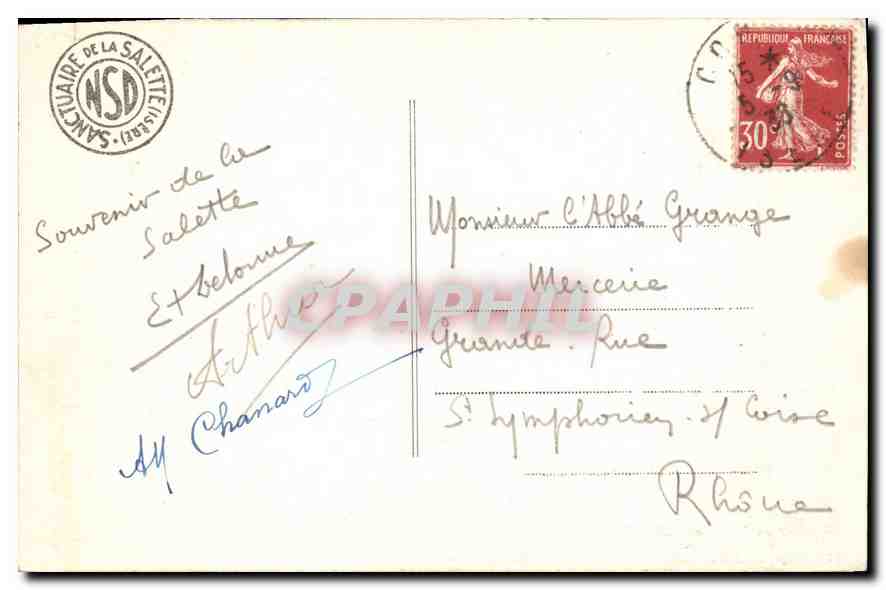 SANCTUAIRE DE LA SALETTE (ISÈRE)
NSD
REPUBLIQUE FRANÇAISE
30c
POSTES
15 *
5 - 9
38
Souvenir de la
Salette
Arthur
Chanard
Monsieur l'Abbé Grange
Mercerie
Grande Rue
St Symphorien s/ Coise
Rhône
CPAPHIL